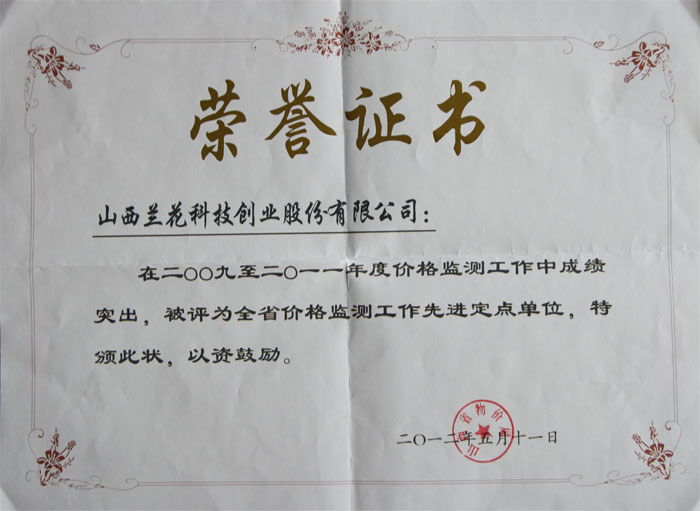 荣誉证书
山西兰花科技创业股份有限公司：
在二〇〇九至二〇一一年度价格监测工作中成绩
突出，被评为全省价格监测工作先进定点单位，特
颁此状，以资鼓励。
山西省物价局
二〇一二年五月十一日